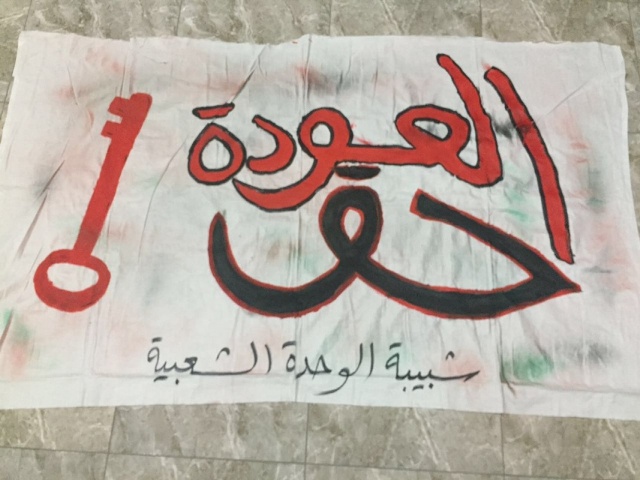 العودة
حق
شبيبة الوحدة الشعبية